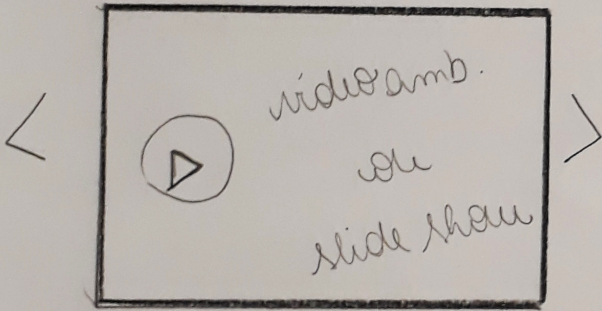 video amb.
ou
slide show